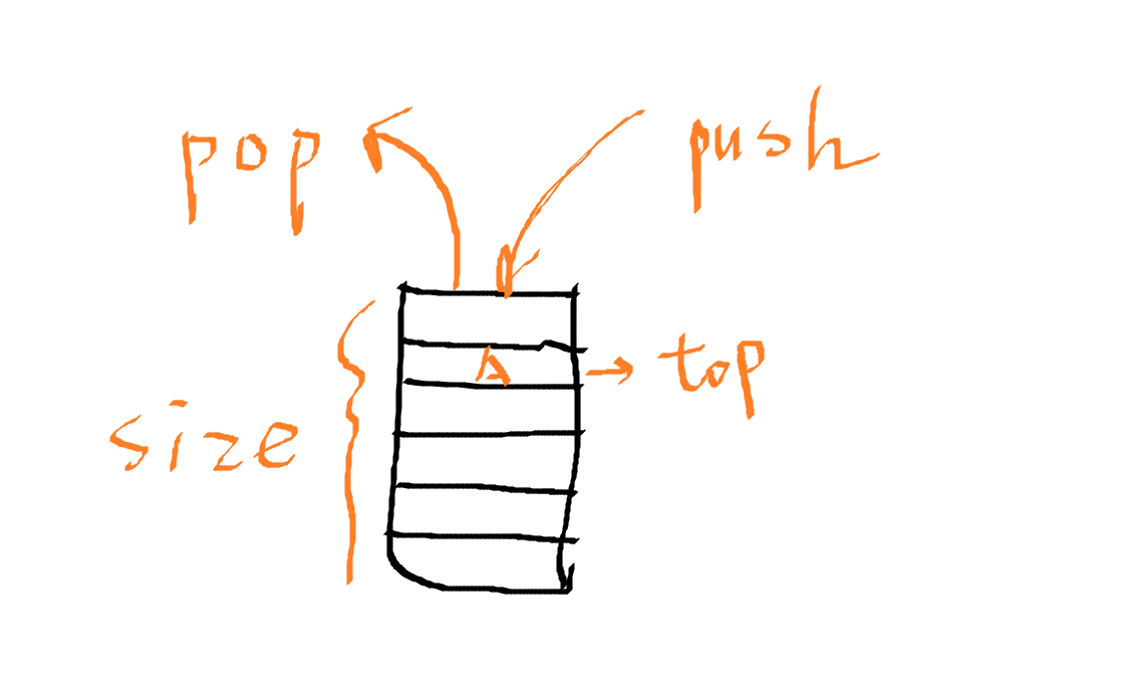 pop
push
A
top
size